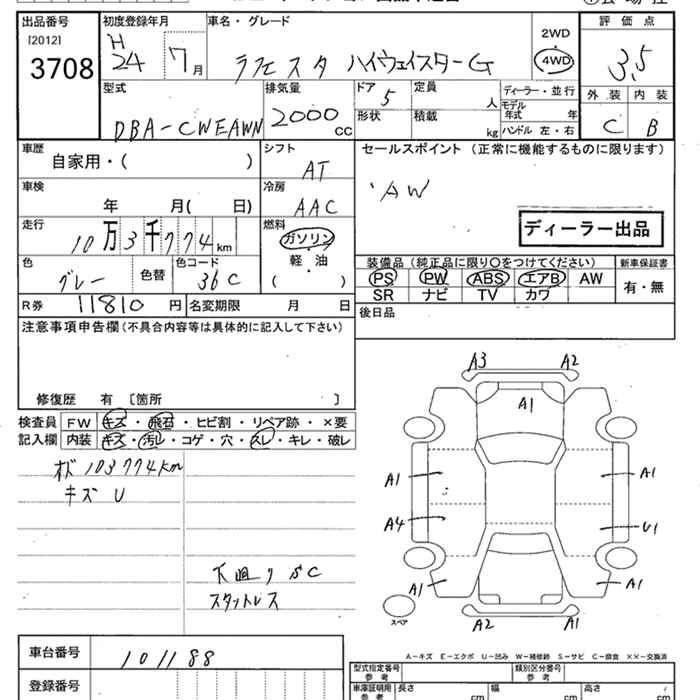 出品番号 初度登録年月 車名・グレード 2WD 評価点
[2012] H
3708 24 7月 ラフェスタ ハイウェイスターG 4WD 3.5
外装 内装
型式 排気量 ドア 定員 ディーラー・並行
DBA-CWEAWN 2000cc 5 人 モデル年式 年 C B
形状 積載 kg ハンドル 左・右
車歴 シフト セールスポイント(正常に機能するものに限ります)
自家用・( ) AT
車検 冷房 AW
年 月( 日) AAC
走行 燃料 ディーラー出品
10万3千774km ガソリン
軽・油
( ・ )
色 色替 色コード 装備品(純正品に限り○をつけてください) 新車保証書
グレー 36C PS PW ABS エアB AW 有・無
SR ナビ TV カワ
R券 11810円 名変期限 月 日
後日品
注意事項申告欄(不具合内容等は具体的に記入して下さい)
修復歴 有 〔箇所 〕
検査員 FW キズ・飛石・ヒビ割・リペア跡・×要
記入欄 内装 キズ・汚レ・コゲ・穴・スレ・キレ・破レ
メド 103774km
キズ U
下廻り SC
スタットレス
A3 A2
A1
A1 A1
A4 U1
A1 A1
スペア A2 A1
A-キズ E-エクボ U-凹み W-補修跡 S-サビ C-腐食 ××-交換済
車台番号 101188
型式指定番号 参考 類別区分番号 参考
登録番号
車庫証明用 参考 長さ cm 幅 cm 高さ cm